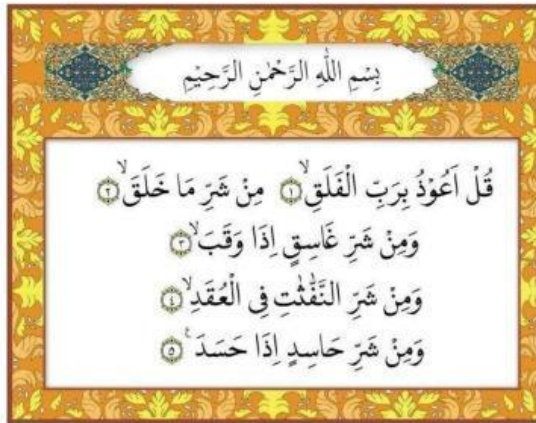 بِسْمِ اللّٰهِ الرَّحْمٰنِ الرَّحِيْمِ
قُلْ اَعُوْذُ بِرَبِّ الْفَلَقِۙ ۝١ مِنْ شَرِّ مَا خَلَقَۙ ۝٢
وَمِنْ شَرِّ غَاسِقٍ اِذَا وَقَبَۙ ۝٣
وَمِنْ شَرِّ النَّفّٰثٰتِ فِى الْعُقَدِۙ ۝٤
وَمِنْ شَرِّ حَاسِدٍ اِذَا حَسَدَ ࣖ ۝٥